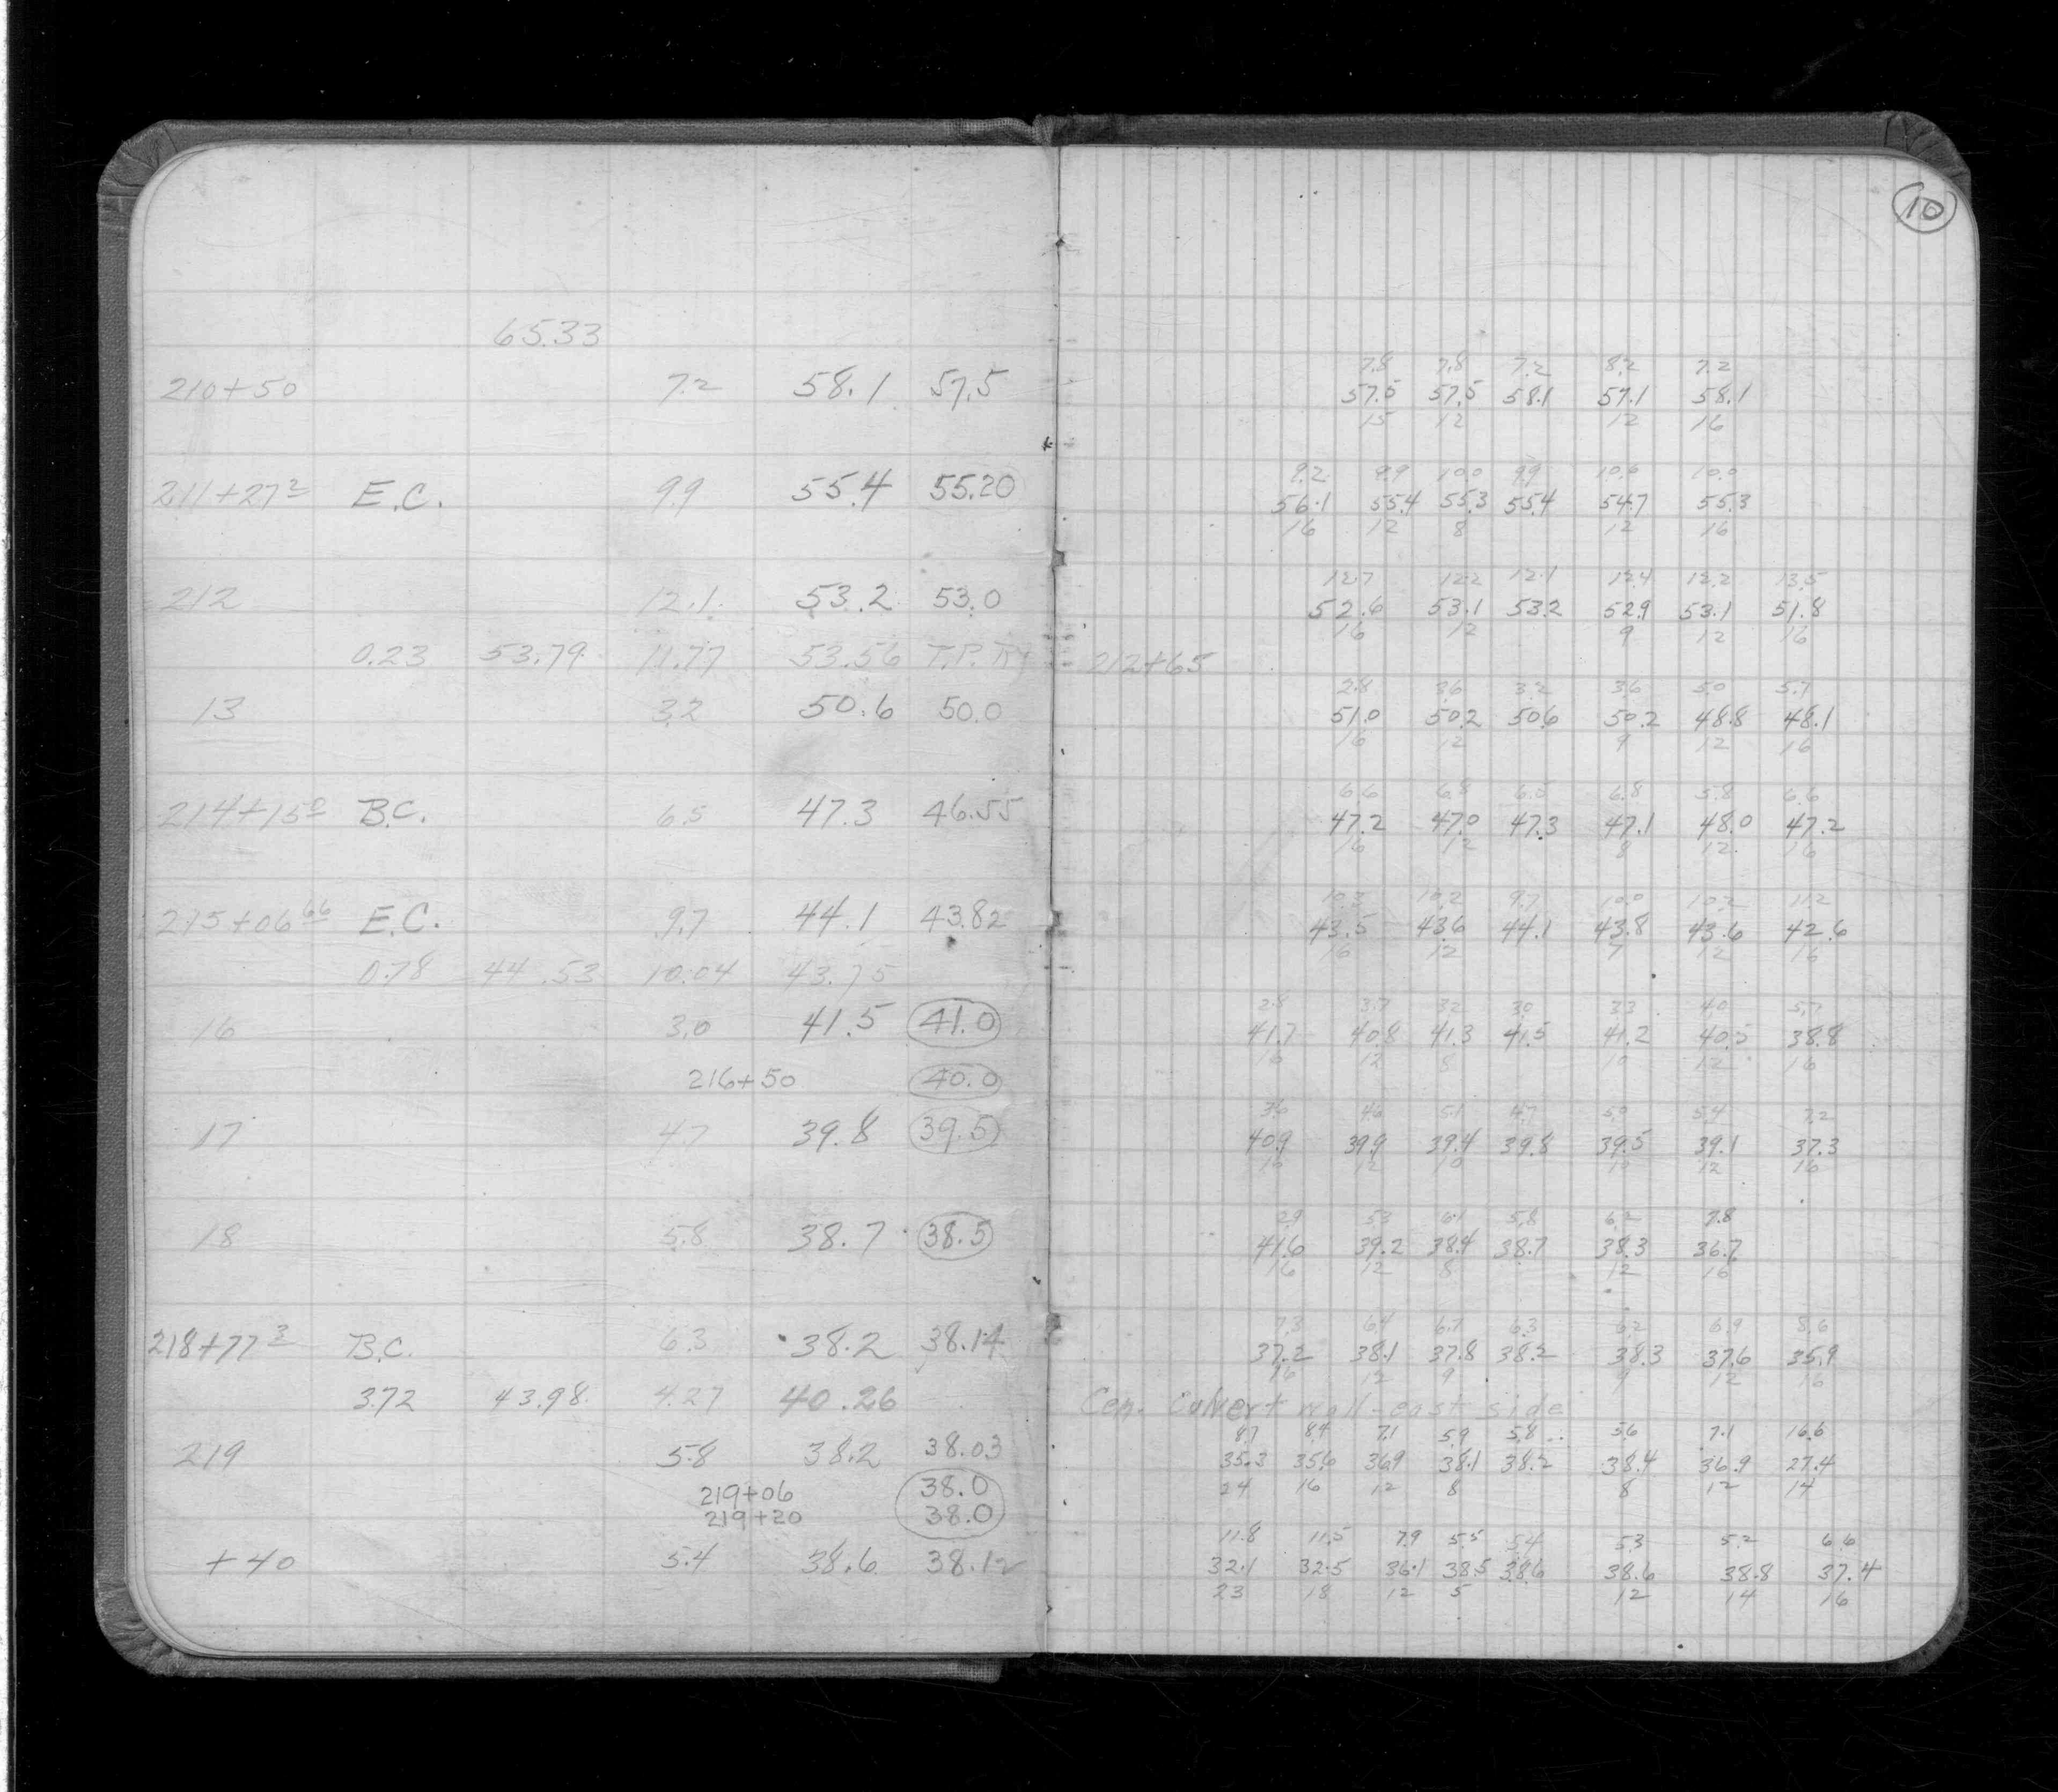 10
65.33
210+50 7.2 58.1 57.5
211+27² E.C. 9.9 55.4 55.20
212 12.1 53.2 53.0
0.23 53.79 11.77 53.56 T.P.
13 3.2 50.6 50.0
214+15⁰ B.C. 6.5 47.3 46.55
215+06⁶⁶ E.C. 9.7 44.1 43.82
0.78 44.53 10.04 43.75
16 3.0 41.5 41.0
216+50 40.0
17 4.7 39.8 39.5
18 5.8 38.7 38.5
218+77³ B.C. 6.3 38.2 38.14
3.72 43.98 4.27 40.26
219 5.8 38.2 38.03
219+06 38.0
219+20 38.0
+40 5.4 38.6 38.12
7.8 7.8 7.2 8.2 7.2
57.5 57.5 58.1 57.1 58.1
15 12 12 16
9.2 9.9 10.0 9.9 10.6 10.0
56.1 55.4 55.3 55.4 54.7 55.3
16 12 8 12 16
12.7 12.2 12.1 12.4 12.2 13.5
52.6 53.1 53.2 52.9 53.1 51.8
16 12 9 12 16
212+65
2.8 3.6 3.2 3.6 5.0 5.7
51.0 50.2 50.6 50.2 48.8 48.1
16 12 9 12 16
6.6 6.8 6.5 6.8 5.8 6.6
47.2 47.0 47.3 47.1 48.0 47.2
16 12 8 12 16
10.3 10.2 9.7 10.0 10.2 11.2
43.5 43.6 44.1 43.8 43.6 42.6
16 12 7 12 16
2.8 3.7 3.2 3.0 3.3 4.0 5.7
41.7 40.8 41.3 41.5 41.2 40.5 38.8
16 12 8 10 12 16
3.6 4.6 5.1 4.7 5.0 5.4 7.2
40.9 39.9 39.4 39.8 39.5 39.1 37.3
16 12 10 10 12 16
2.9 5.3 6.1 5.8 6.2 7.8
41.6 39.2 38.4 38.7 38.3 36.7
16 12 8 12 16
7.3 6.4 6.7 6.3 6.2 6.9 8.6
37.2 38.1 37.8 38.2 38.3 37.6 35.9
16 12 9 9 12 16
Cem. Culvert wall-east side
8.7 8.4 7.1 5.9 5.8 5.6 7.1 16.6
35.3 35.6 36.9 38.1 38.2 38.4 36.9 27.4
24 16 12 8 8 12 14
11.8 11.5 7.9 5.5 5.4 5.3 5.2 6.6
32.1 32.5 36.1 38.5 38.6 38.6 38.8 37.4
23 18 12 5 12 14 16